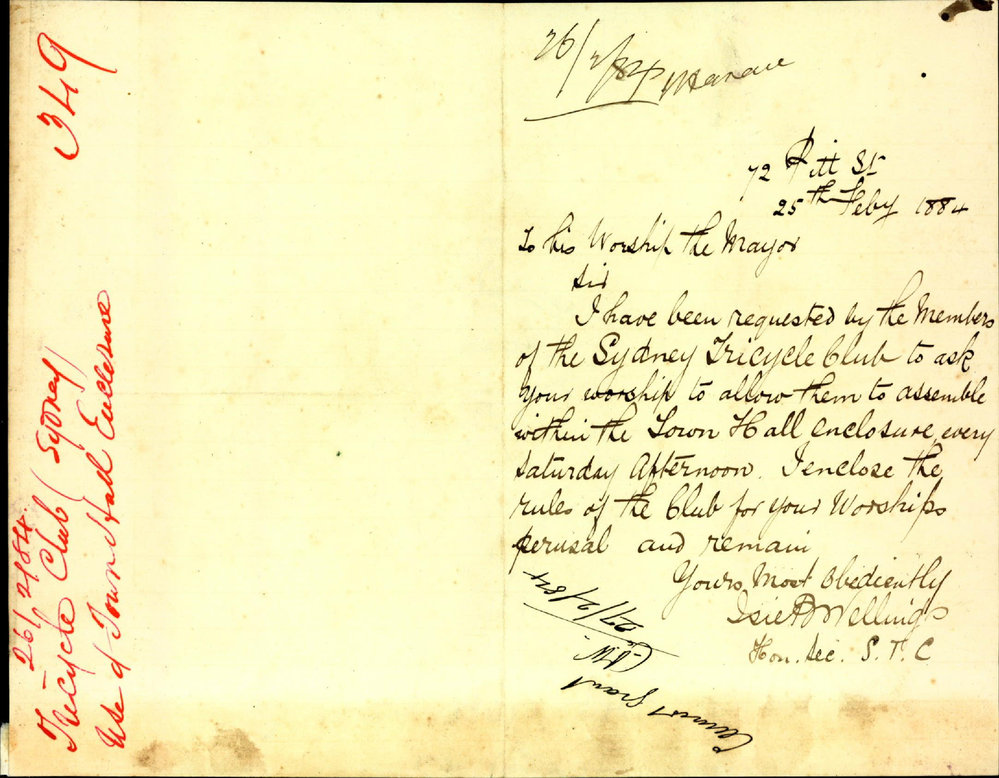 349
26/2/84.
Tricycle Club (Sydney)
Use of Town Hall Enclosure
26/2/84
72 Pitt St
25th Feby 1884
To his Worship the Mayor
Sir
I have been requested by the Members
of the Sydney Tricycle Club to ask
Your worship to allow them to assemble
within the Town Hall enclosure every
Saturday Afternoon. I enclose the
rules of the Club for your Worships
perusal and remain
Yours Most Obediently
Wellings
Hon. Sec. S. T. C
Cannot grant
27/2/84